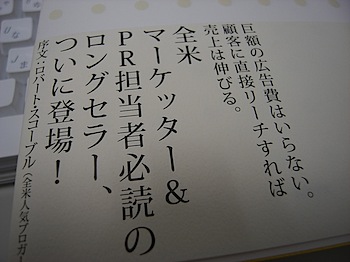 巨額の広告費はいらない。
顧客に直接リーチすれば
売上は伸びる。
全米
マーケッター&
PR担当者必読の
ロングセラー、
ついに登場!
序文・ロバート・スコーブル(全米人気ブロガー